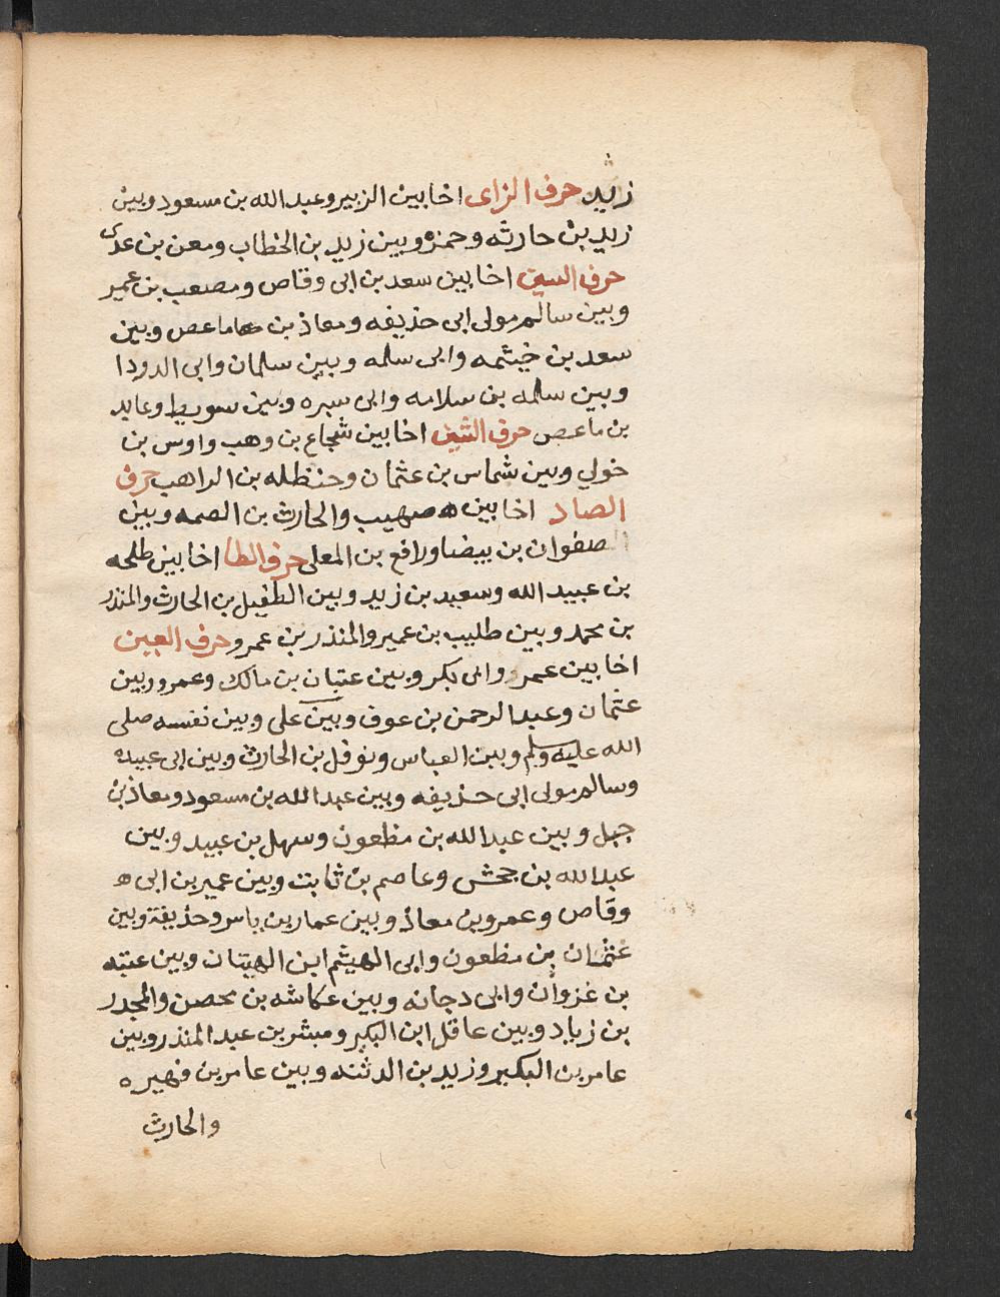 زيد حرف الزاى اخا بين الزبير وعبد الله بن مسعود وبين
زيد بن حارثه وحمزه وبين زيد بن الخطاب ومعن بن عدى
حرف السين اخا بين سعد بن ابى وقاص ومصعب بن عمير
وبين سالم مولى ابى حذيفه ومعاذ بن ماعص وبين
سعد بن خيثمه وابى سلمه وبين سلمان وابى الدودا
وبين سلمه بن سلامه وابى سبره وبين سويط وعابد
بن ماعص حرف الشين اخا بين شجاع بن وهب واوس بن
خولي وبين شماس بن عثمان وحنظله بن الراهب حرف
الصاد اخا بين صهيب والحارث بن الصمه وبين
صفوان بن بيضا ورافع بن المعلى حرف الطا اخا بين طلحه
بن عبيد الله وسعيد بن زيد وبين الطفيل بن الحارث والمنذر
بن محمد وبين طليب بن عمير والمنذر بن عمرو حرف العين
اخا بين عمر وابى بكر وبين عتبان بن مالك وعمر وبين
عثمان وعبد الرحمن بن عوف وبين على وبين نفسه صلى
الله عليه وسلم وبين العباس ونوفل بن الحارث وبين ابى عبيده
وسالم مولى ابى حذيفه وبين عبد الله بن مسعود ومعاذ بن
جبل وبين عبد الله بن مظعون وسهل بن عبيد وبين
عبد الله بن جحش وعاصم بن ثابت وبين عمير بن ابى
وقاص وعمرو بن معاذ وبين عمار بن ياسر وحذيفة وبين
عثمان بن مظعون وابى الهيثم ابن الهيتان وبين عتبه
بن غزوان وابى دجانه وبين عكاشه بن محصن والمجدر
بن زياد وبين عاقل ابن البكير ومبشر بن عبد المنذر وبين
عامر بن البكير وزيد بن الدثنه وبين عامر بن فهيره
والحارث